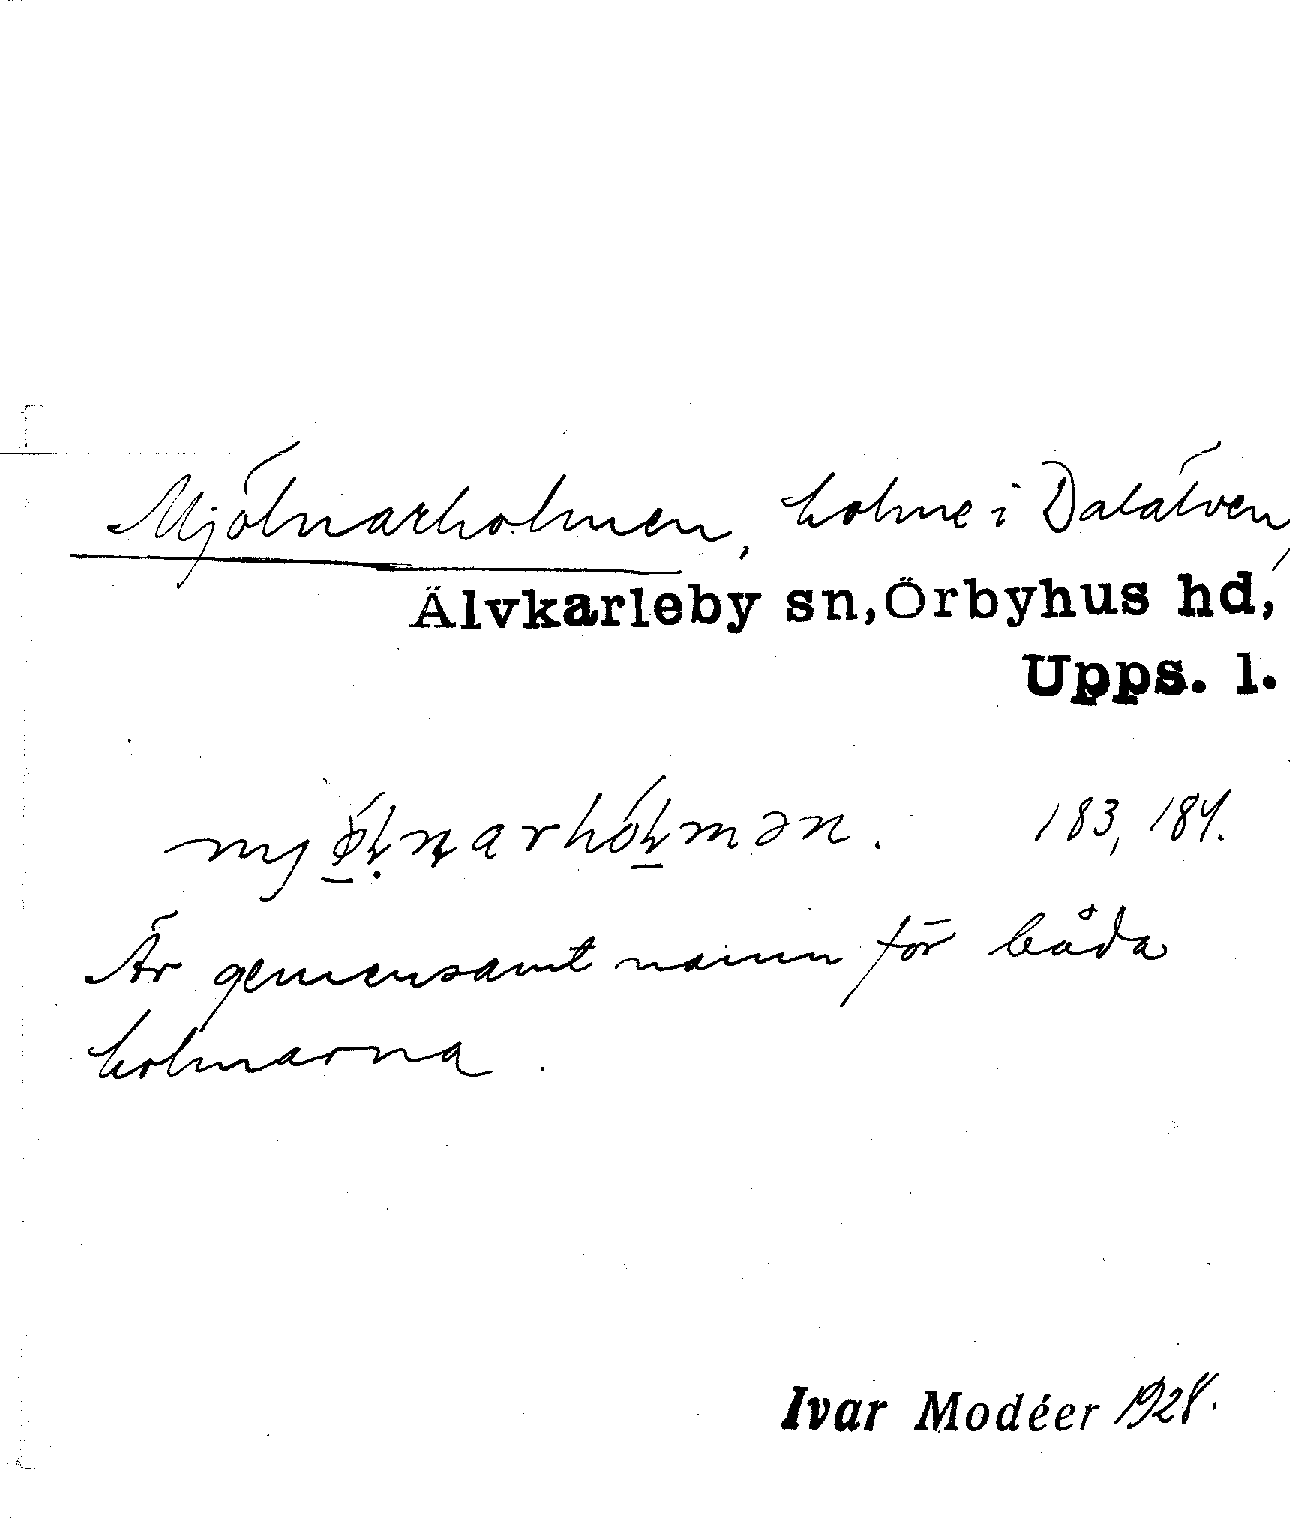 Mjölnarholmen, holme i Dalälven,
Älvkarleby sn, Örbyhus hd,
Upps. l.
183, 184.
Är gemensamt namn för båda
holmarna.
Ivar Modéer 1924.